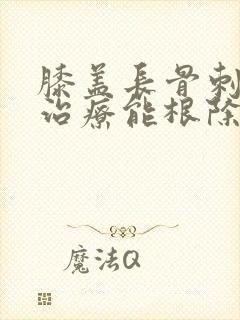 膝盖長骨刺
治療能根除
魔法Q